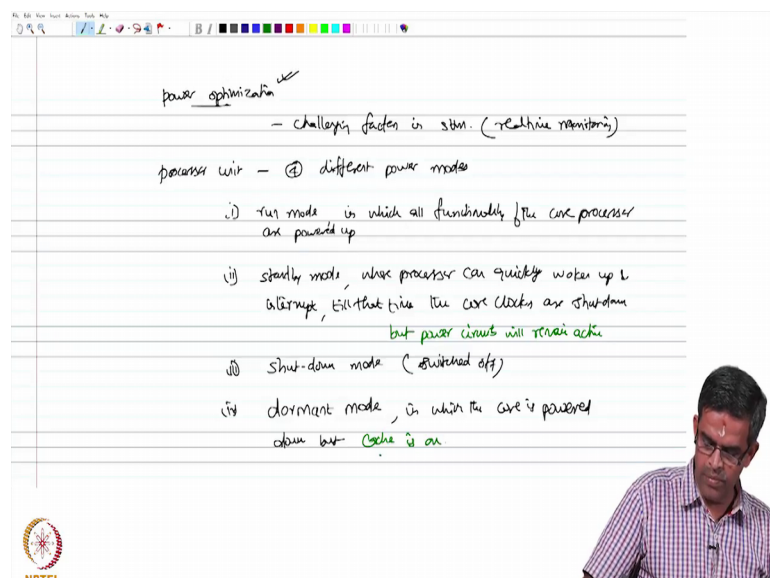 File Edit View Insert Actions Tools Help
power optimization
- challenging factor in shm. (realtime monitoring)
processor unit - ④ different power modes
i) run mode in which all functionality of the core processor
are powered up
ii) standby mode, where processor can quickly wakes up &
interrupt, till that time the core clocks are shutdown
but power circuits will remain active
iii) shut-down mode (switched off)
iv) dormant mode, in which the core is powered
down but Cache is on.
NPTEL